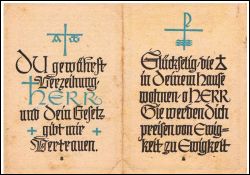 DU gewährst
Verzeihung
HERR
und dein Gesetz
gibt mir
Vertrauen.
Glückselig, die
in deinem Hause
wohnen, o HERR
Sie werden dich
preisen von Ewig=
keit zu Ewigkeit